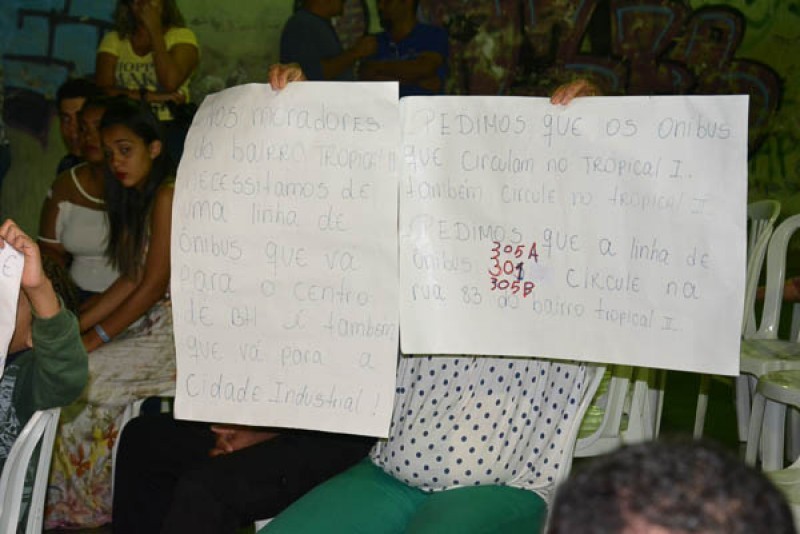 Nós moradores
do bairro TROPICAL II
necessitamos de
uma linha de
ônibus que vá
para o centro
de BH e também
que vá para a
Cidade Industrial !
PEDIMOS QUE OS ONIBUS
QUE CIRCULAM NO TROPICAL I.
também CIRCULE NO tROPICAL II
PEDIMOS QUE A linha de
ônibus 305A
301
305B CIRCULE na
rua 83 do bairro tropical II